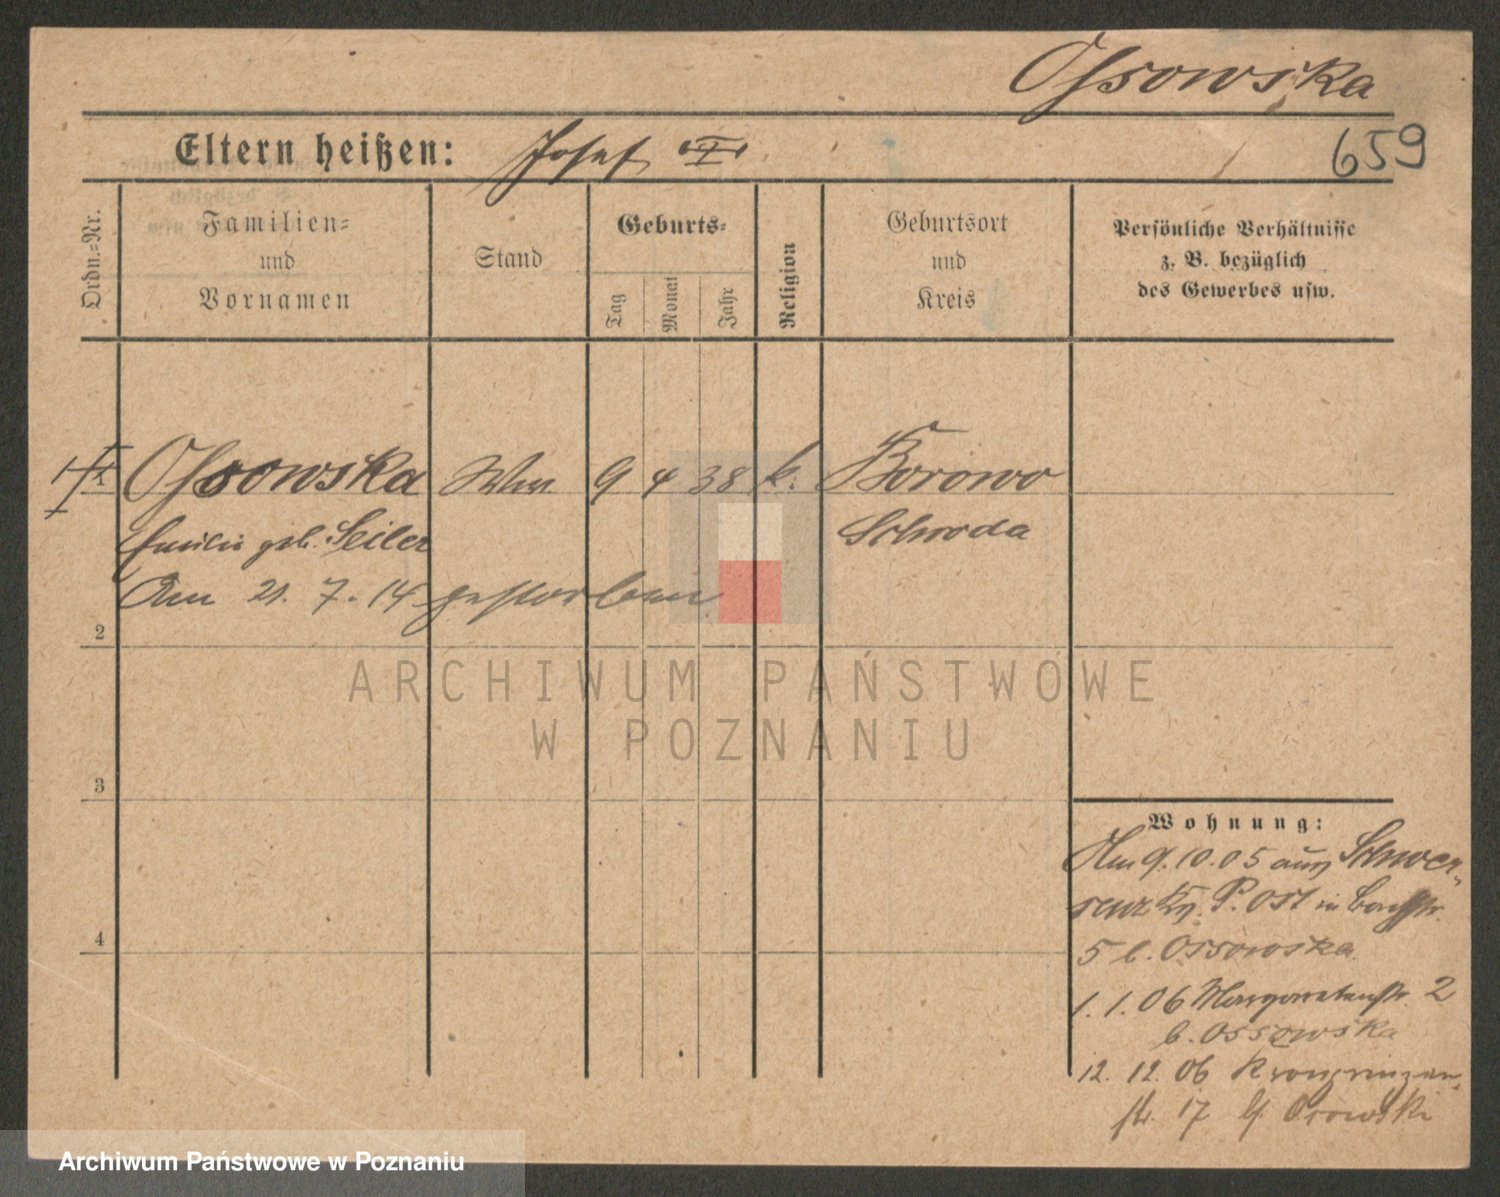 Ossowska
659
Eltern heißen: Josef
Ordn.-Nr.
Familien-
und
Vornamen
Stand
Geburts-
Tag
Monat
Jahr
Religion
Geburtsort
und
Kreis
Persönliche Verhältnisse
z. B. bezüglich
des Gewerbes usw.
Ossowska Wwe. 9 4 38 k. Borowo
Emilie geb. Seiler Schroda
Am 21. 7. 14 gestorben
2
3
4
Wohnung:
Am 9.10.05 aus Schwer-
senz Kr. P. Ost in
5 b. Ossowska
1. 1. 06 Margaretenstr. 2
b. Ossowska
12. 12. 06 Kronprinzen-
str. 17 b.
ARCHIWUM PAŃSTWOWE
W POZNANIU
Archiwum Państwowe w Poznaniu